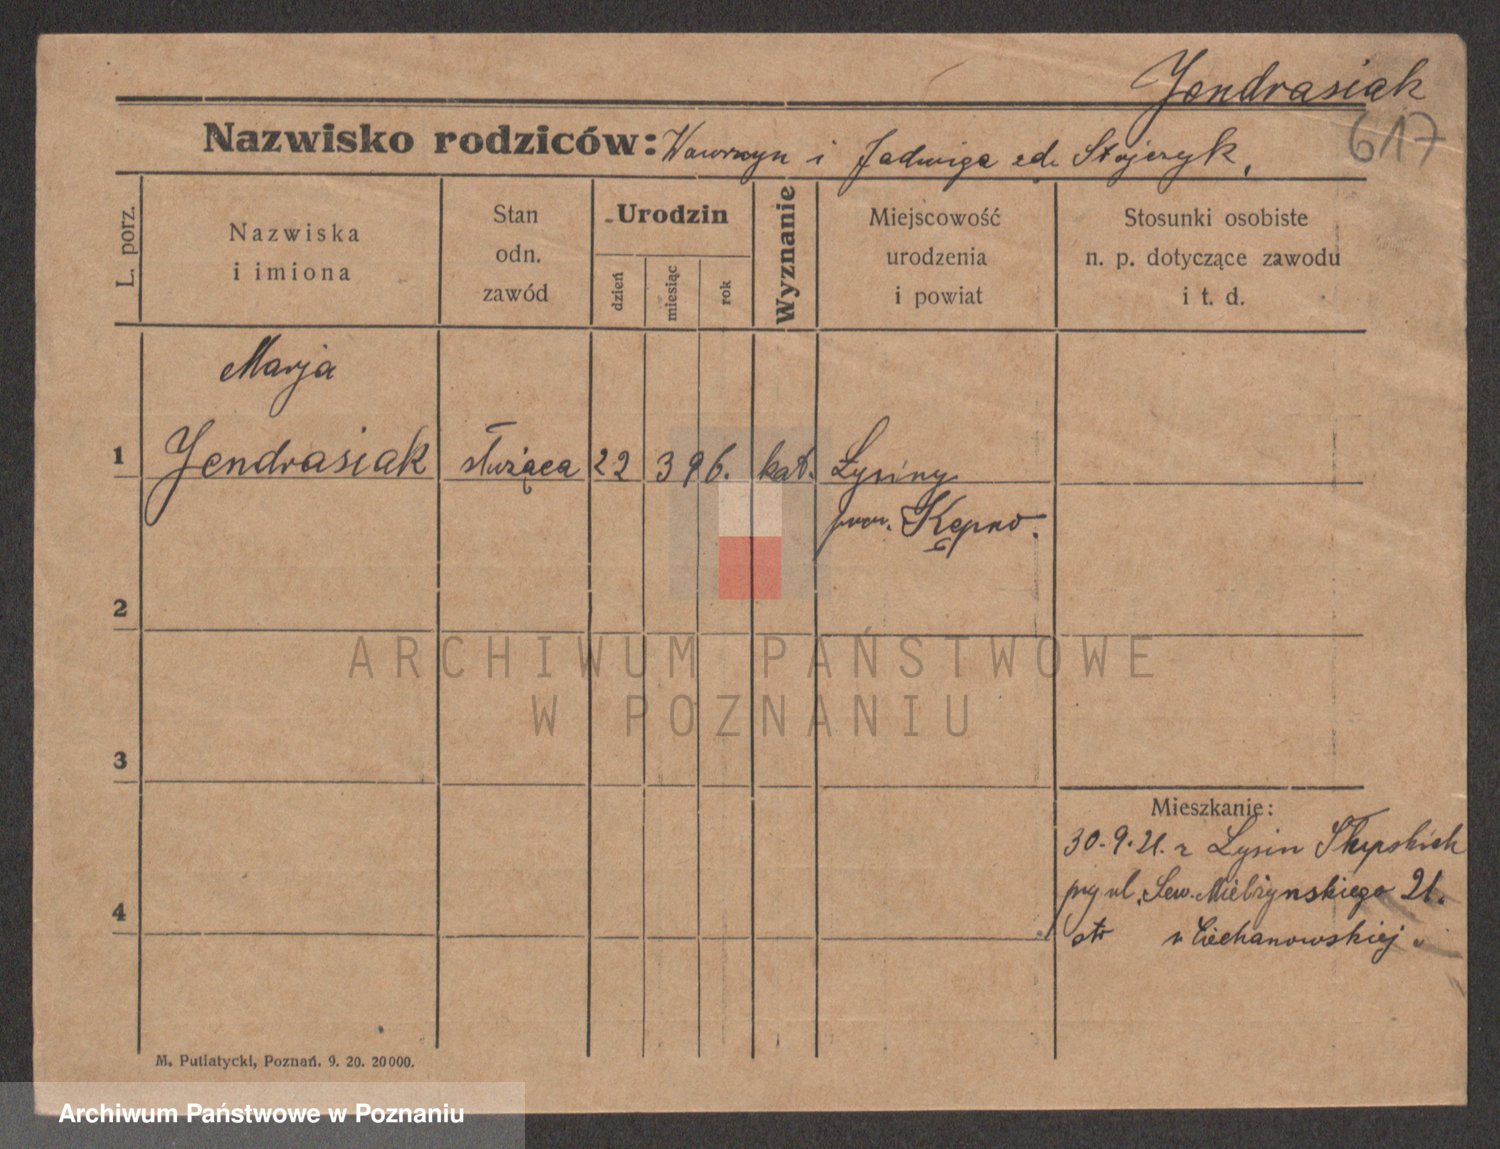 Jendrasiak
617
Nazwisko rodziców: Wawrzyn i Jadwiga zd. Stojczyk,
L. porz.
Nazwiska
i imiona
Stan
odn.
zawód
Urodzin
dzień
miesiąc
rok
Wyznanie
Miejscowość
urodzenia
i powiat
Stosunki osobiste
n. p. dotyczące zawodu
i t. d.
Marja
1 Jendrasiak służąca 22 3 96. kat. Łysiny
pow. Kępno.
2
ARCHIWUM PAŃSTWOWE
W POZNANIU
3
Mieszkanie:
30.9.21. z Łysin Słupskich
prz ul. Sew. Mielżynskiego 21.
u Ciechanowskiej
4
M. Putiatycki, Poznań. 9. 20. 20000.
Archiwum Państwowe w Poznaniu